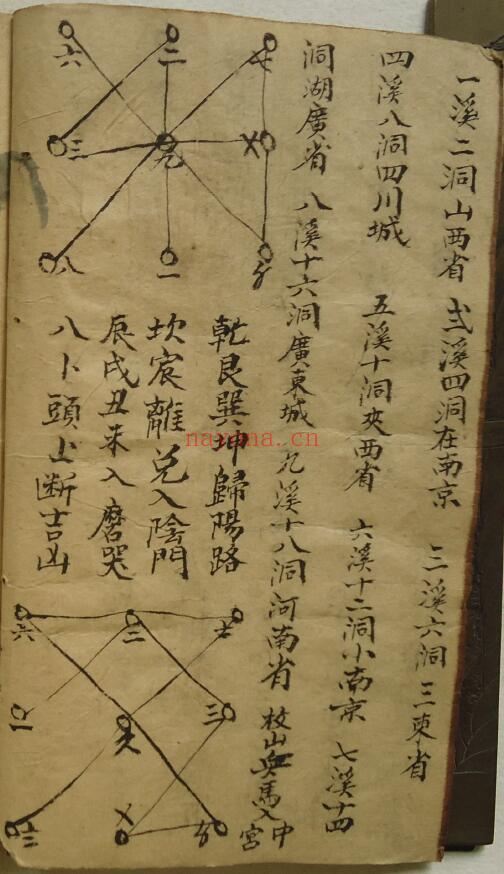 一溪二洞山西省 弍溪四洞在南京 三溪六洞三東省
四溪八洞四川城 五溪十洞夾西省 六溪十二洞小南京 七溪十四
洞湖廣省 八溪十六洞廣東城 九溪十八洞河南省 枚山兵馬入中宮
乾艮巽坤歸陽路
坎宸離兌入陰門
辰戌丑未入磨哭
八卜頭上断吉凶
六 二 七
三 九 〤
八 一
六 三 七
一 三
nayona.cn